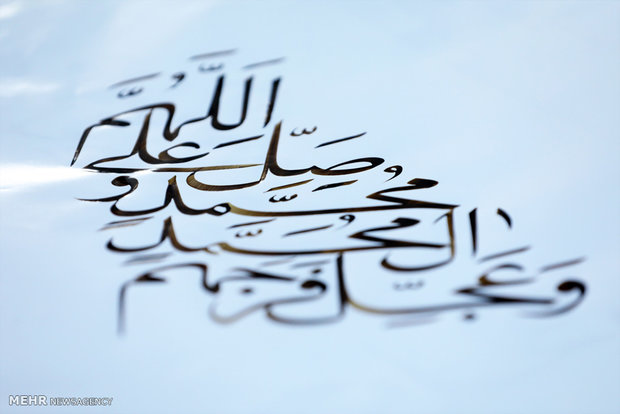 اللّهُمَّ
صَلِّ عَلی
مُحَمَّدٍ وَ
آلِ مُحَمَّدٍ
وَ عَجِّل فَرَجَهُم
MEHR NEWSAGENCY